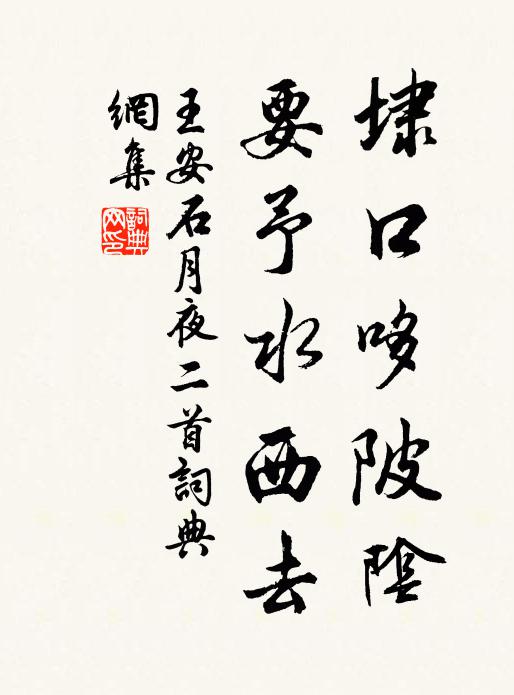 埭口哆陂陰
要予水西去
王安石月夜二首詞典
網集
詞典
网印